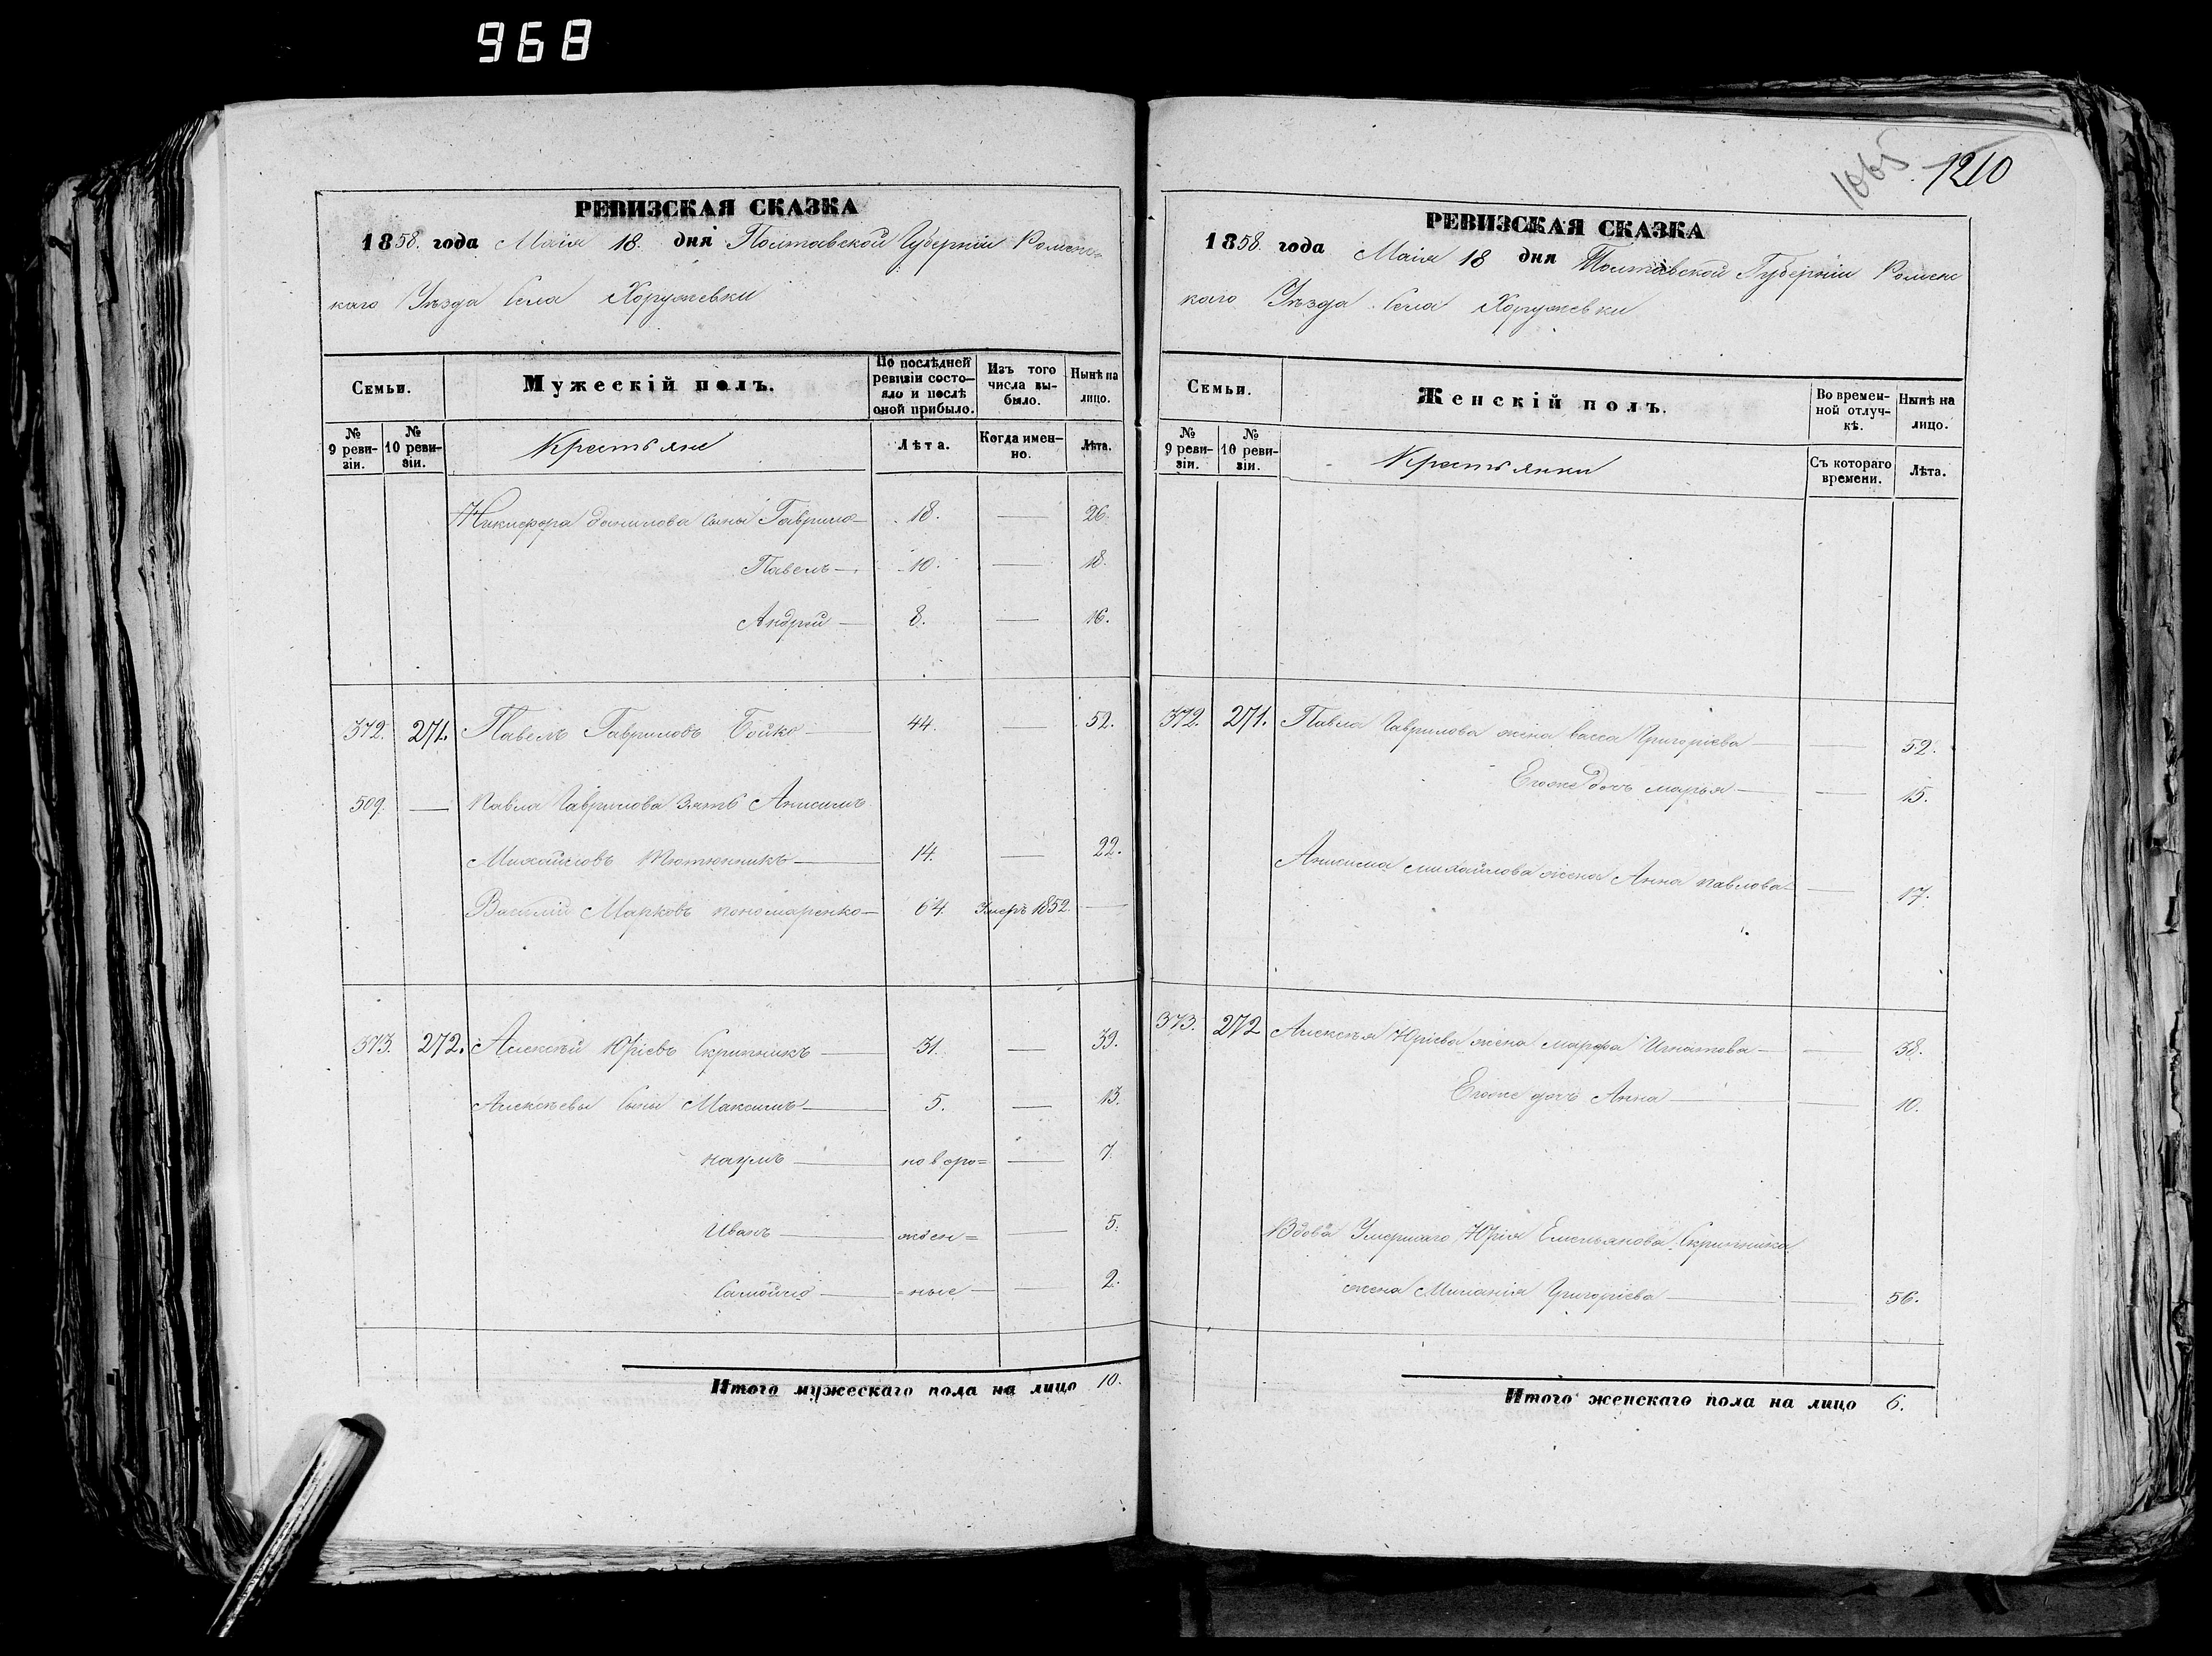 968
РЕВИЗСКАЯ СКАЗКА
1858. года Маія 18. дня Полтавской Губерніи Роменс=
каго Уѣзда Села Хоружевки
Семьи.
Мужескій полъ.
По послѣдней ревизіи состояло и послѣ оной прибыло.
Изъ того числа выбыло.
Нынѣ на лицо.
№ 9 ревизіи.
№ 10 ревизіи.
Крестьяне
Лѣта.
Когда именно.
Лѣта.
Никифора Данилова сыны Гаврило — 18. — 26.
Павелъ — 10. — 18.
Андрій — 8. — 16.
372. 271. Павелъ Гавриловъ Бойко — 44. — 52.
509. — Павла Гаврилова зять Анисимъ
Михайловъ Тютюнникъ — 14. — 22.
Василій Марковъ пономаренко — 64. Умеръ 1852. —
373. 272. Алексѣй Юріевъ Скрипникъ — 31. — 39.
Алексѣевы сыны Максимъ — 5. — 13.
наумъ — новоро= — 7.
Иванъ — жден= — 5.
Самойло — =ные — 2.
Итого мужескаго пола на лицо 10.
1065
1210
РЕВИЗСКАЯ СКАЗКА
1858. года Маія 18 дня Полтавской Губерніи Роменс
каго Уѣзда Села Хоружевки
Семьи.
Женскій полъ.
Во временной отлучкѣ.
Нынѣ на лицо.
№ 9 ревизіи.
№ 10 ревизіи.
Крестьянки
Съ котораго времени.
Лѣта.
372. 271. Павла Гаврилова жена васса Григоріева — — 52.
Егоже дочь марья — — 15.
Анисима михайлова жена Анна павлова — — 17.
373. 272 Алексѣя Юріева жена марфа Игнатова — — 38.
Егоже дочь Анна — — 10.
Вдова Умершаго Юрія Емельянова Скрипника
жена Миланія Григоріева — — 56.
Итого женскаго пола на лицо 6.